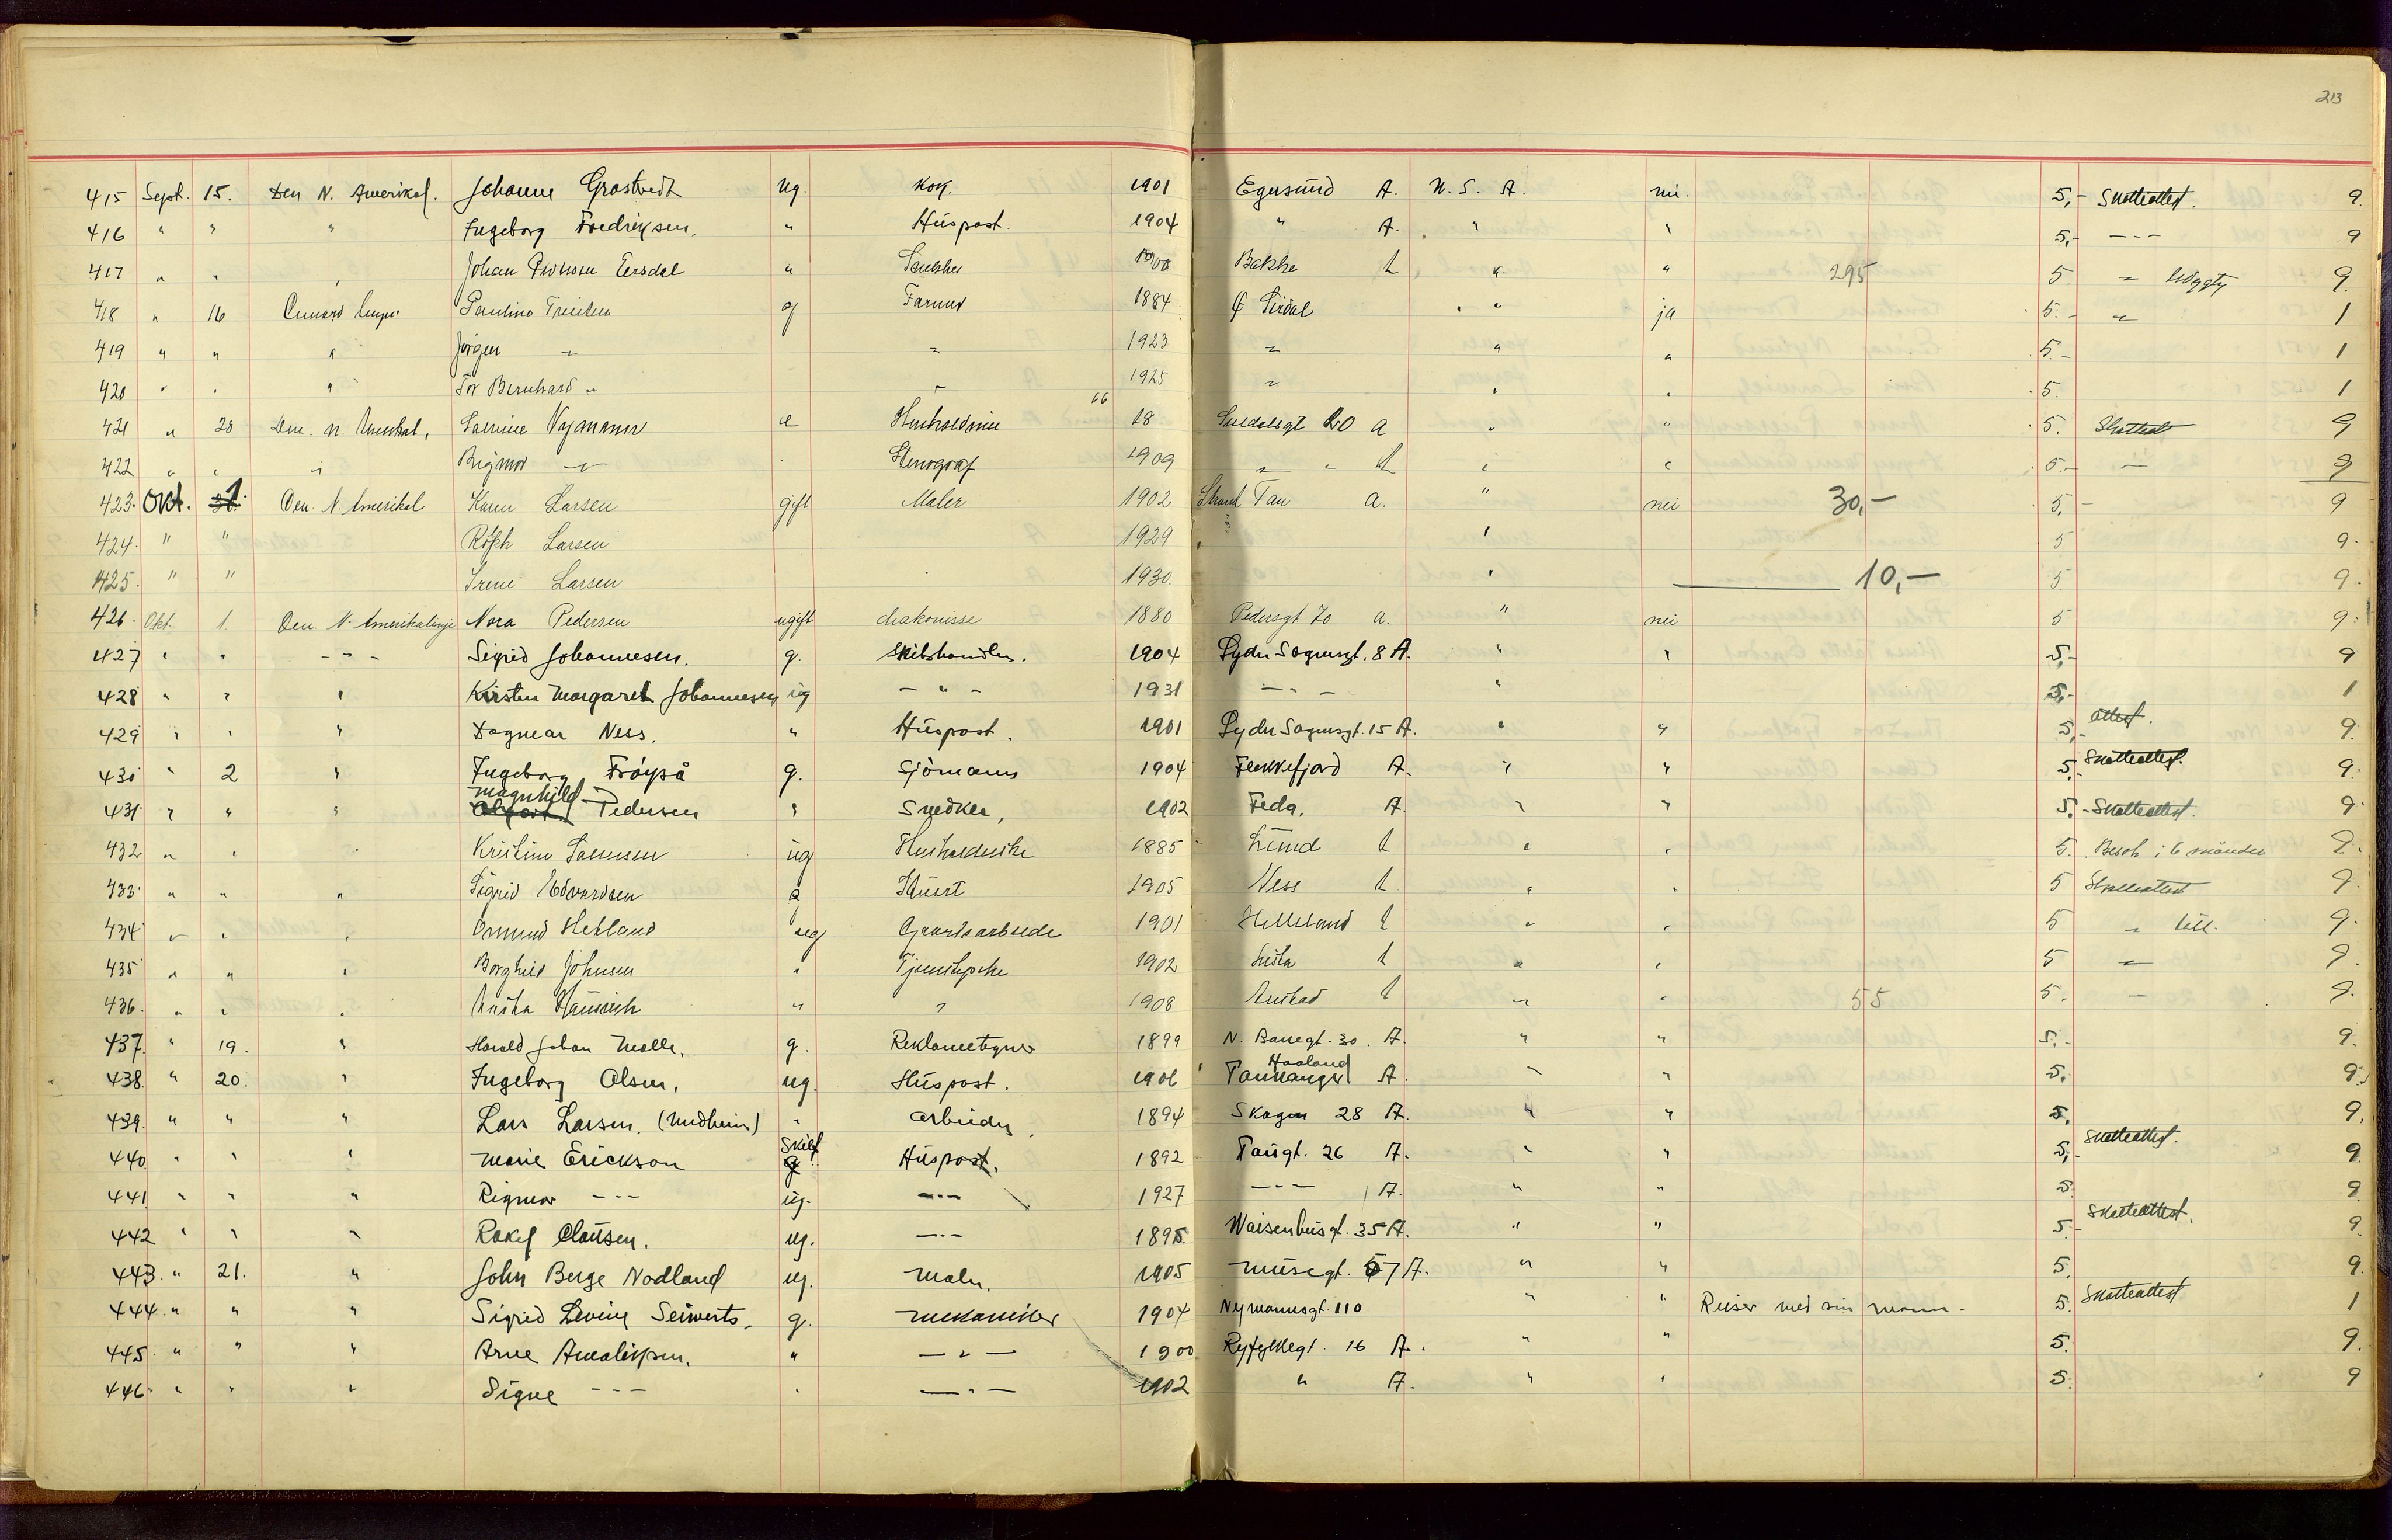 213
415 Sept. 15. Den N. Amerikal. Johanne Grostvedt ug. Kok. 1901 Egersund A. U. S. A. nei. 5,- Skatteattest. 9.
416 " " " Ingeborg Fredriksen. " Huspost. 1904 " A. " " 5,- - - - 9
417 " " " Johan " Snekker 1900 Bakke " " 295 5 " 9.
418 " 16 Cunard Paulina g Farmer 1884 Ø Sirdal " ja 5.- " 1
419 " " " Jörgen " " 1923 " " " 5.- 1
420 " " " Tor Bernhard " " 1925 " " " 5. 1
421 " 28 Den. N. Amerikal. Nymann e 66 18 Suldalsgt 20 a " " 5. Skatteat 9
422 " " " Rigmor " Stenograf 1909 " " " " 5.- - 9
423. Okt. 1. Den N. Amerikal Karen Larsen gift Maler 1902 Strand Tau a. " nei 30,- 5,- 9
424. " " Larsen 1929 " " 5 9.
425. " " Irene Larsen 1930 " 10,- 5 9.
426. Okt. 1 Den N. Amerikalinje Nora Pedersen ugift diakonisse 1880 Pedersgt 70 a. " nei 5 9.
427 " " - " - Sigrid Johannesen. g. Skibshandler. 1904 Lyder Sagensgt. 8 A. " " 5,- 9
428 " " " Kirsten Margaret Johannesen ug - " - 1931 - " - " 5,- 1
429 " " " Dagmar Ness. " Huspost. 1901 Lyder Sagensgt. 15 A. " " 5,- attest. 9.
430 " 2 " Ingeborg Fröyså g. Sjömann 1904 Flekkefjord A. " " 5,- Skatteattest. 9.
431 " " " Magnhild Pedersen " Snedker, 1902 Feda. A. " " 5,- Skatteattest. 9
432 " " " Kristine ug Husholderske 1885 Lund " " 5. Besök i 6 måneder 9.
433 " " " Sigrid Edvardsen 1905 Ness " " 5 Skatteattest 9.
434 " " " Ormund Helland ug Gaardsarbeide 1901 Helleland " " 5 " 9.
435 " " " Borghild Johnsen " Tjenestepike 1902 Lista " " 5 " 9.
436. " " " " " 1908 " " 55 5. - 9.
437. " 19. " Harald Johan Malle. g. Reklametegner 1899 N. Banegt. 30. A. " " 5,- 9.
438. " 20. " Ingeborg Olsen. ug. Huspost. 1906 Haaland Tananger A. " " 5, 9.
439. " " " Lars Larsen. (Midheim) " arbeider. 1894 Skagen 28 A. " " 5, 9.
440 " " " Marie Erickson Skilt g Huspost. 1892 Taugt. 26 A. " " 5,- Skatteattest. 9.
441 " " " Rigmor - " - ug. - " - 1927 - " - A. " " 5 9
442 " " " Rakel Clausen. ug. - " - 1895. Waisenhusgt. 35 A. " " 5.- Skatteattest. 9.
443. " 21. " John Berge Nodland ug. Maler. 1905 Musegt. 57 A. " " 5. 9.
444. " " " Sigrid Levine Seiwerts. g. mekaniker 1904 Nymannsgt. 110 " " Reiser med sin mann. 5. Skatteattest 1
445. " " " Arne Amaliksen. " - " - 1900 Ryfylkegt. 16 A. " " 5. 9.
446. " " " Signe - " - " - " - 1902 " A. " " 5. 9